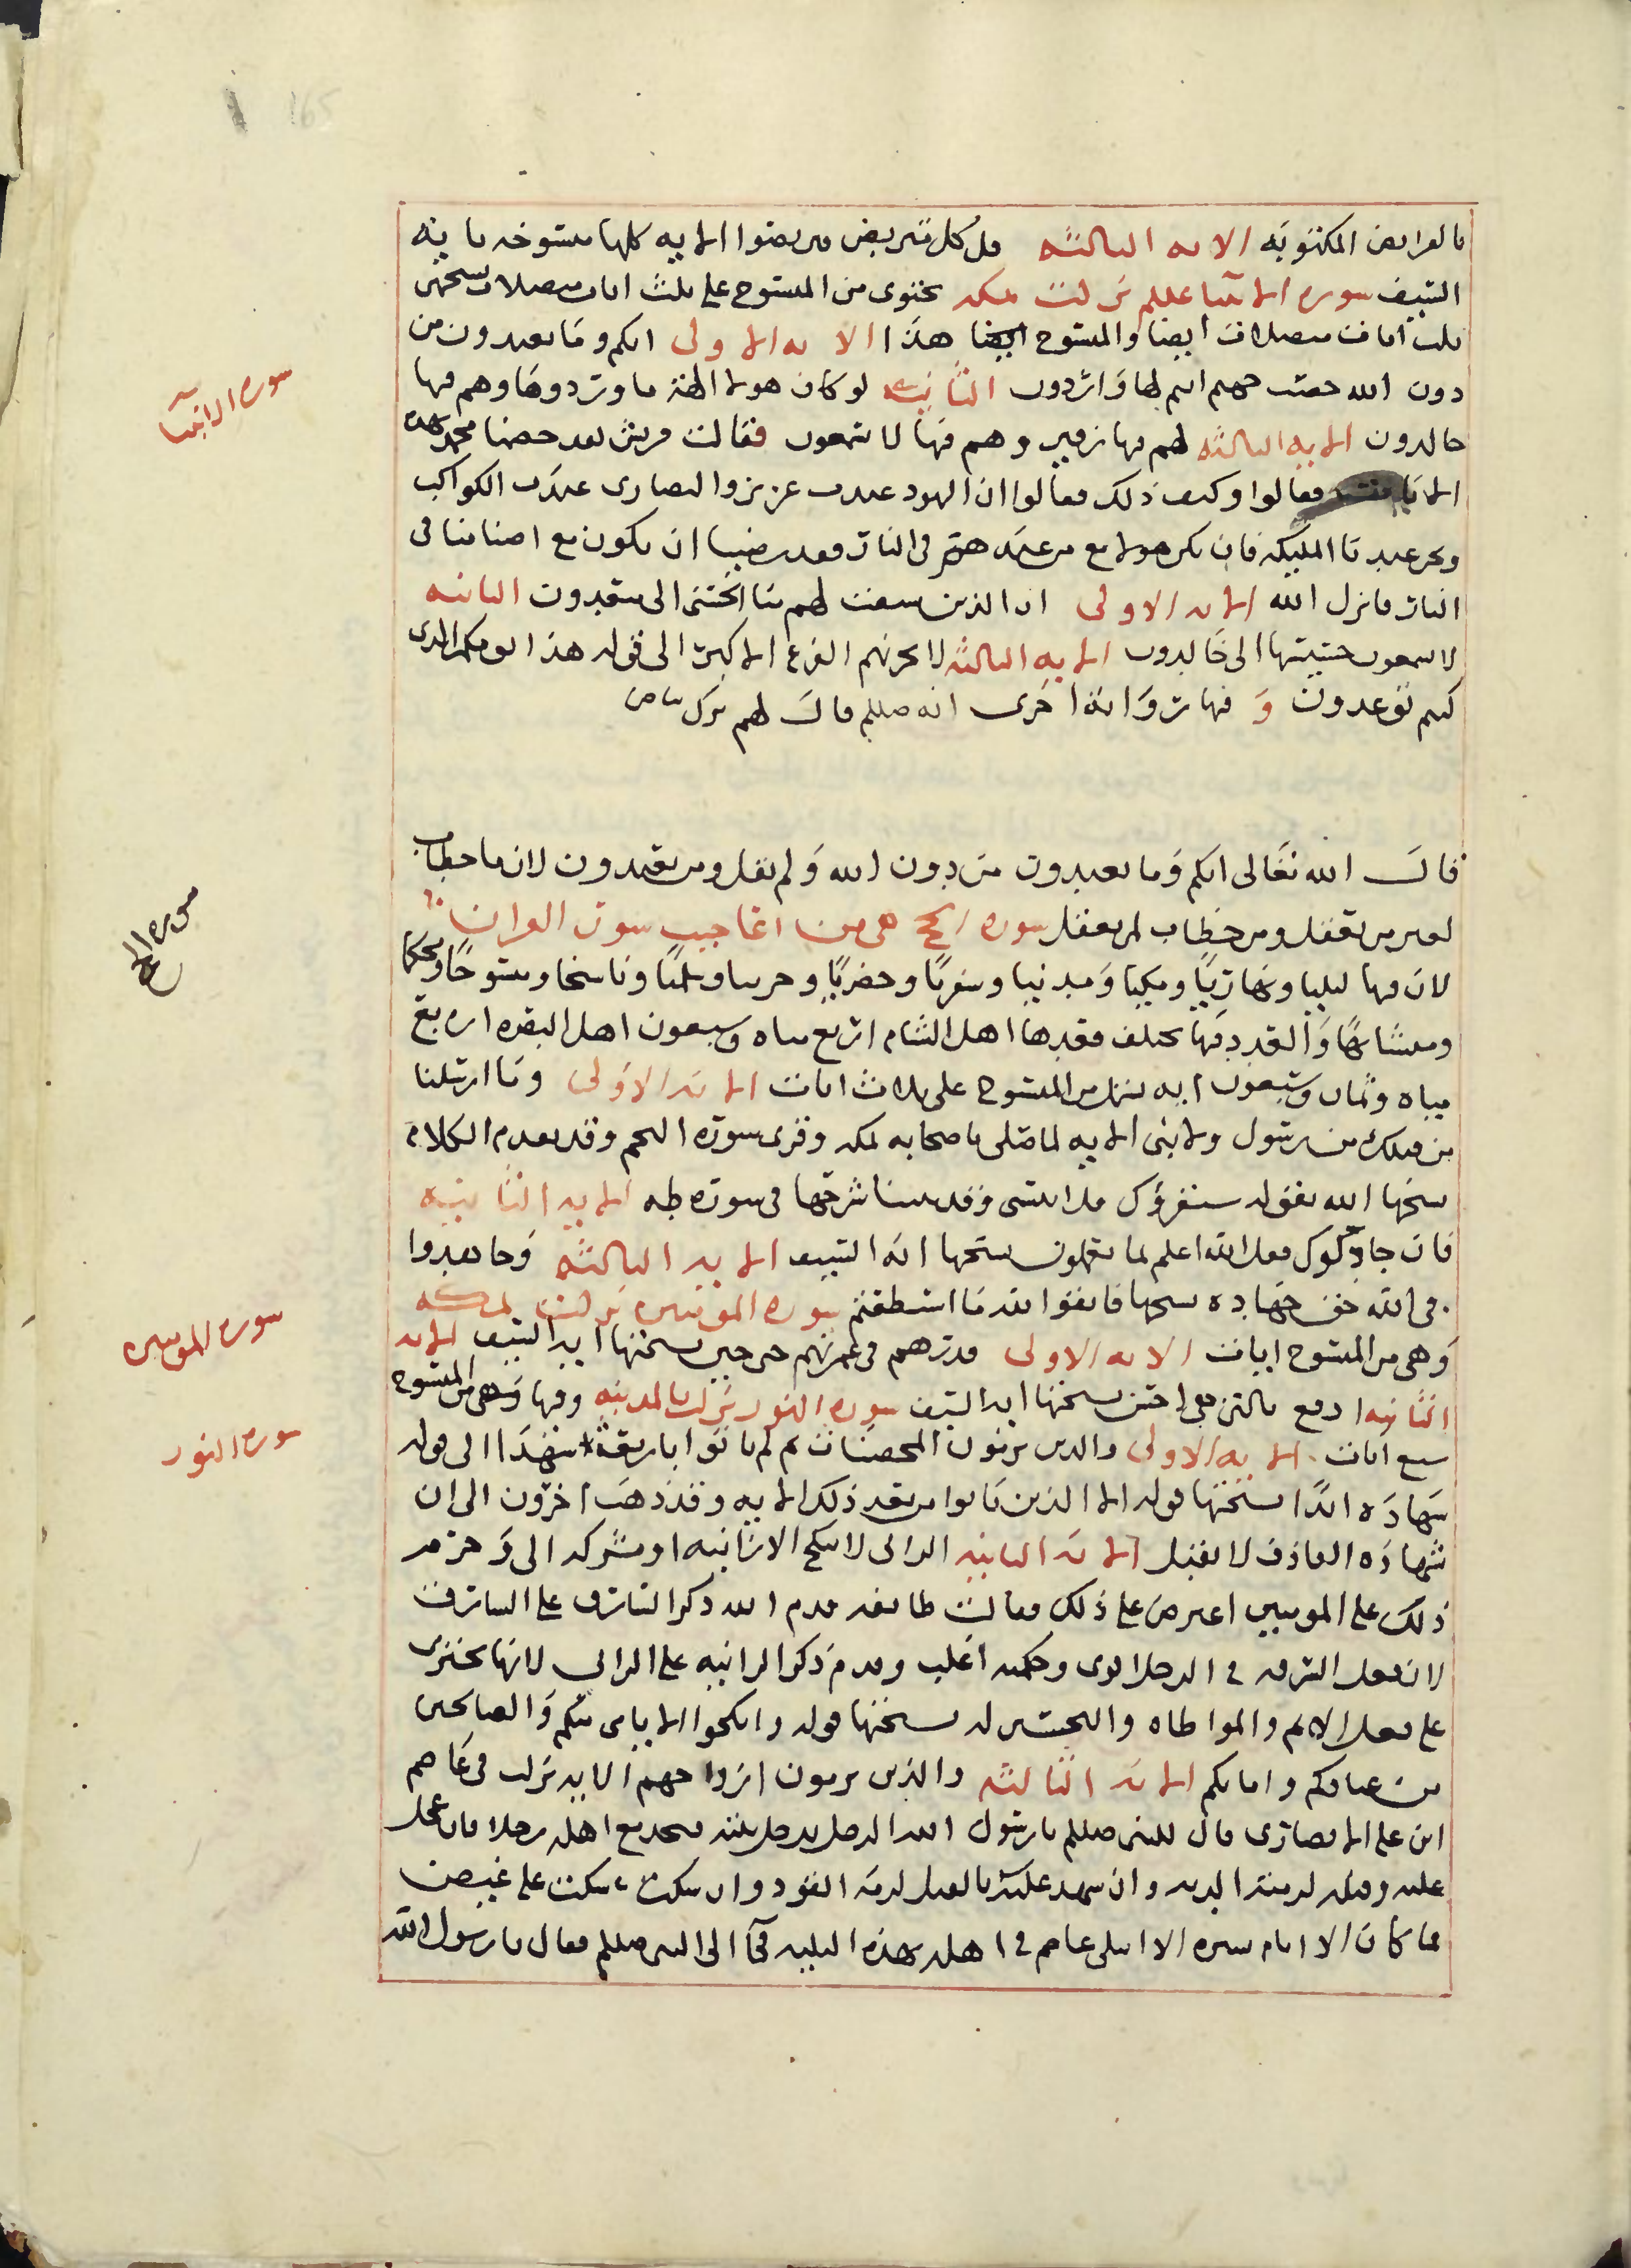 165
بالفرايض المكتوبه الايه الثالثه قل كل متربص فتربصوا الايه كلها منسوخه باية
السيف سوره الانبيا عللم نزلت بمكه تحتوى من المنسوخ على ثلث ايات متصلات نسختهن
ثلث ايات متصلات ايضا والمنسوخ ايضا هذا الايه الاولى انكم وما تعبدون من
دون الله حصب جهنم انتم لها واردون الثانيه لو كان هولا الهة ما وردوها وهم فيها
خالدون الايه الثالثه لهم فيها زفير وهم فيها لا يسمعون فقالت قريش لقد خصنا محمد بهذه
الايات فقالوا وكيف ذلك فقالوا ان اليهود عبدت عزيز والنصارى عبدت الكواكب
ونحن عبدنا المليكه فان يكن هولا مع من عبدهم فى النار فقد رضينا ان نكون مع اصنامنا فى
النار فانزل الله الايه الاولى ان الذين سبقت لهم منا الحسنى الى مبعدون الثانيه
لا يسمعون حسيسها الى خالدون الايه الثالثه لا يحزنهم الفزع الاكبر الى قوله هذا يومكم الذى
كنتم توعدون و فيها رواية اخرى انه صللم قال لهم نزل
قال الله تعالى انكم وما تعبدون من دون الله ولم يقل ومن تعبدون لان ما خطاب
لغير من يعقل ومن خطاب لمن يعقل سوره الحج هى من اعاجيب سور القران
لان فيها ليليا ونهاريا ومكيا ومدنيا وسفريا وحضريا وحربيا وسلميا وناسخا ومنسوخا ومحكما
ومتشابها والعدد فيها مختلف فعدها اهل الشام اربع مياه وسبعون اهل البقره اربع
مياه وثمان وسبعون ايه من المنسوخ على ثلاث ايات الايه الاولى وما ارسلنا
من قبلك من رسول ولا نبى الايه لما صلى باصحابه بمكه وقرى سورة النجم وقد تقدم الكلام
نسخها الله بقوله سنقرؤك فلا تنسى وقد بينا شرحها فى سورة طه الايه الثانيه
فان جادلوك فقل الله اعلم بما تعملون نسختها اية السيف الايه الثالثه وجاهدوا
فى الله حق جهاده نسختها فاتقوا الله ما استطعتم سوره المومنين نزلت بمكه
وهى من المنسوخ ايات الايه الاولى فذرهم فى غمرتهم حتى حين نسختها ايه السيف الايه
الثانيه ادفع بالتى هى احسن نسختها ايه السيف سوره النور نزلت بالمدينه وفيها وهى من المنسوخ
سبع ايات الايه الاولى والذين يرمون المحصنات ثم لم ياتوا باربعة شهدا الى قوله
شهاده ابدا نسختها قوله الا الذين تابوا من بعد ذلك الايه وقد ذهب اخرون الى ان
شهاده القاذف لا تقبل الايه الثانيه الزانى لا ينكح الا زانيه او مشركه الى وحرم
ذلك على المومنين اعترض على ذلك فقالت طائفه قدم الله ذكر السارق على السارقت
لان فعل السرقه فى الرجل اقوى وحكمه اغلب وقدم ذكر الزانيه على الزانى لانها تحتوى
على فعل الاثم والمواطاه نسختها قوله وانكحوا الايامى منكم والصالحين
من عبادكم وامائكم الايه الثالثه والذين يرمون ازواجهم الايه نزلت فى عاصم
ابن على الانصارى قال للنبى صللم يارسول الله الرجل يدخل بيته فيجد مع اهله رجلا فان عجل
عليه وقتله لزمته الديه وان شهد عليه بالفعل لزمه القود وان سكت سكت على غيض
فما كان الا ايام يسيره الا ابتلى عاصم فى اهله بهذه البليه فجآ الى النبى صللم فقال يا رسول الله
سوره الانبيا
سوره الحج
سوره المومنين
سوره النور